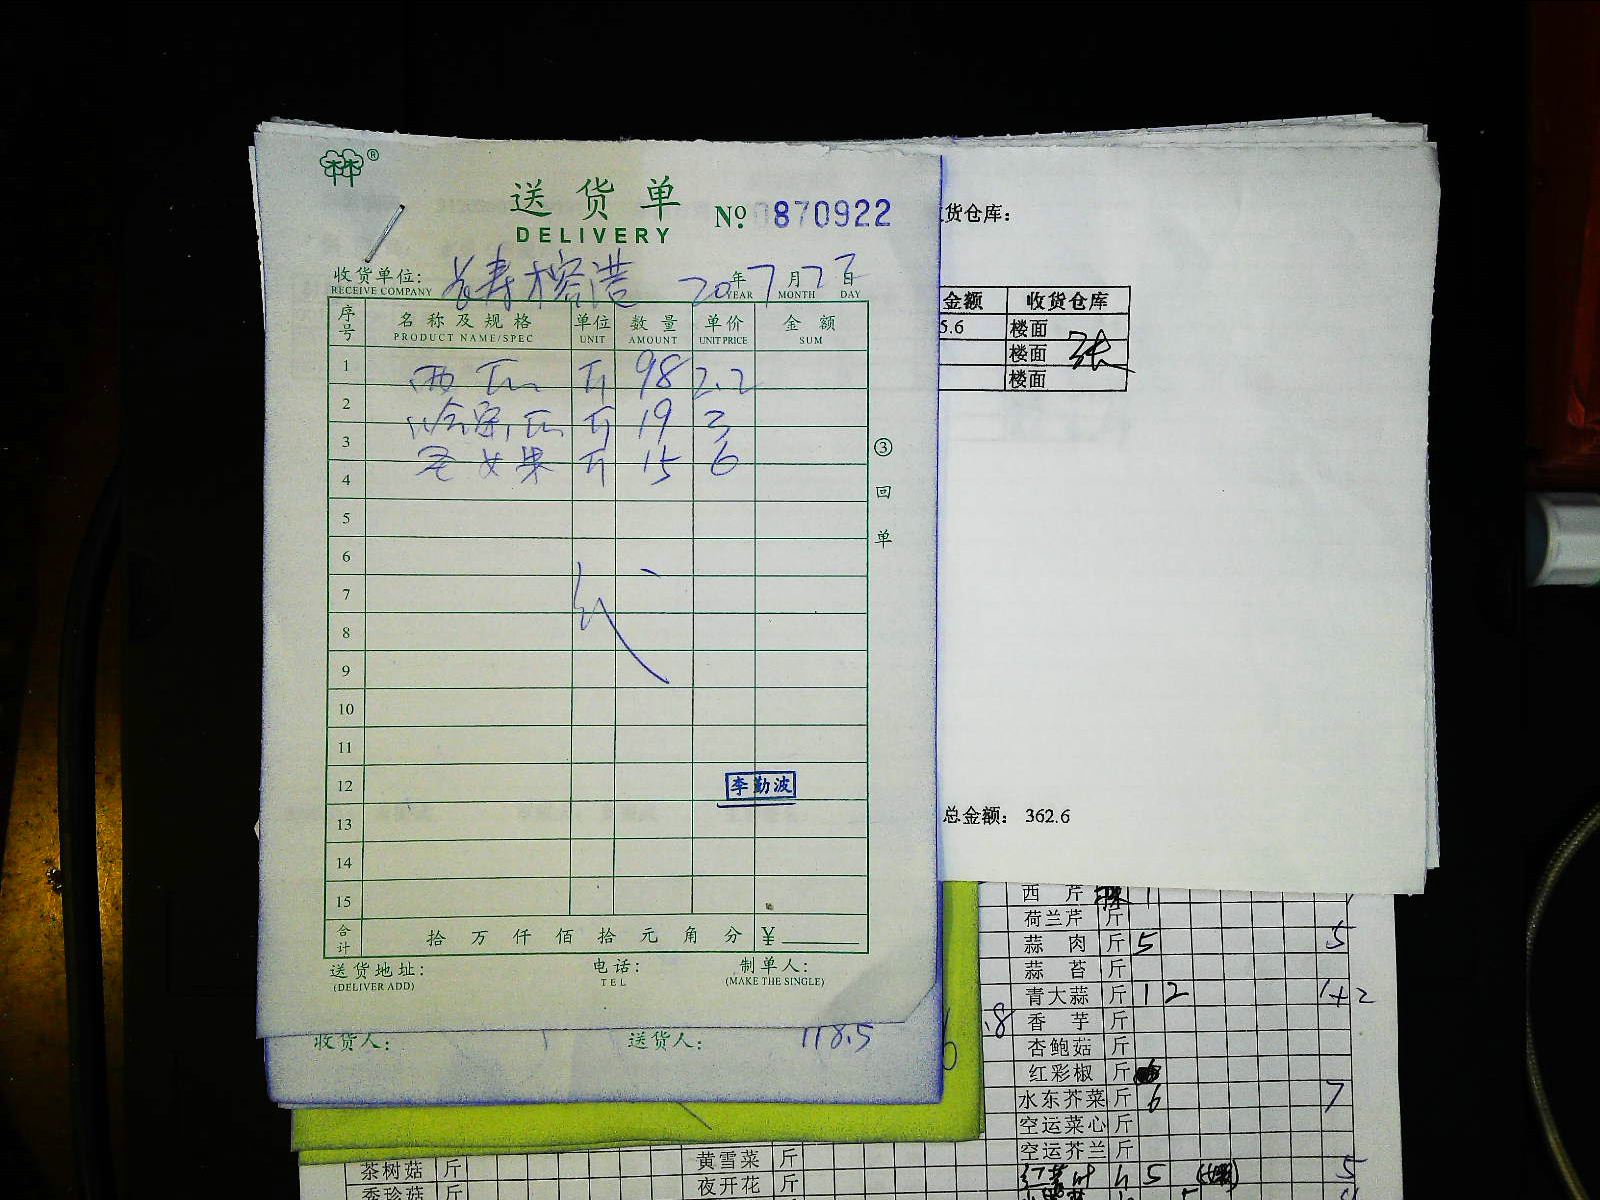 送货单
DELIVERY
№ 0870922
收货单位: 长寿榕浩 20年7月27日
RECEIVE COMPANY YEAR MONTH DAY
序号 名称及规格 单位 数量 单价 金额
PRODUCT NAME/SPEC UNIT AMOUNT UNIT PRICE SUM
1 西瓜 斤 98 2.2
2 哈密瓜 斤 19 3
3 圣女果 斤 15 6
4
5
6
7
8
9
10
11
12 李勤波
13
14
15
合计 拾万仟佰拾元角分 ¥
送货地址: 电话: 制单人:
(DELIVER ADD) TEL (MAKE THE SINGLE)
③回单
收货人: 送货人: 118.5
货仓库:
金额 收货仓库
5.6 楼面
楼面 张
楼面
总金额: 362.6
西芹 1
荷兰芹 斤
蒜肉 斤 5 5
蒜苔 斤
青大蒜 斤 1 2 1+2
.8 香芋 斤
杏鲍菇 斤
红彩椒 斤
水东芥菜 斤 6 7
空运菜心 斤
空运芥兰 斤
茶树菇 斤 黄雪菜 斤 5 5
秀珍菇 斤 夜开花 斤